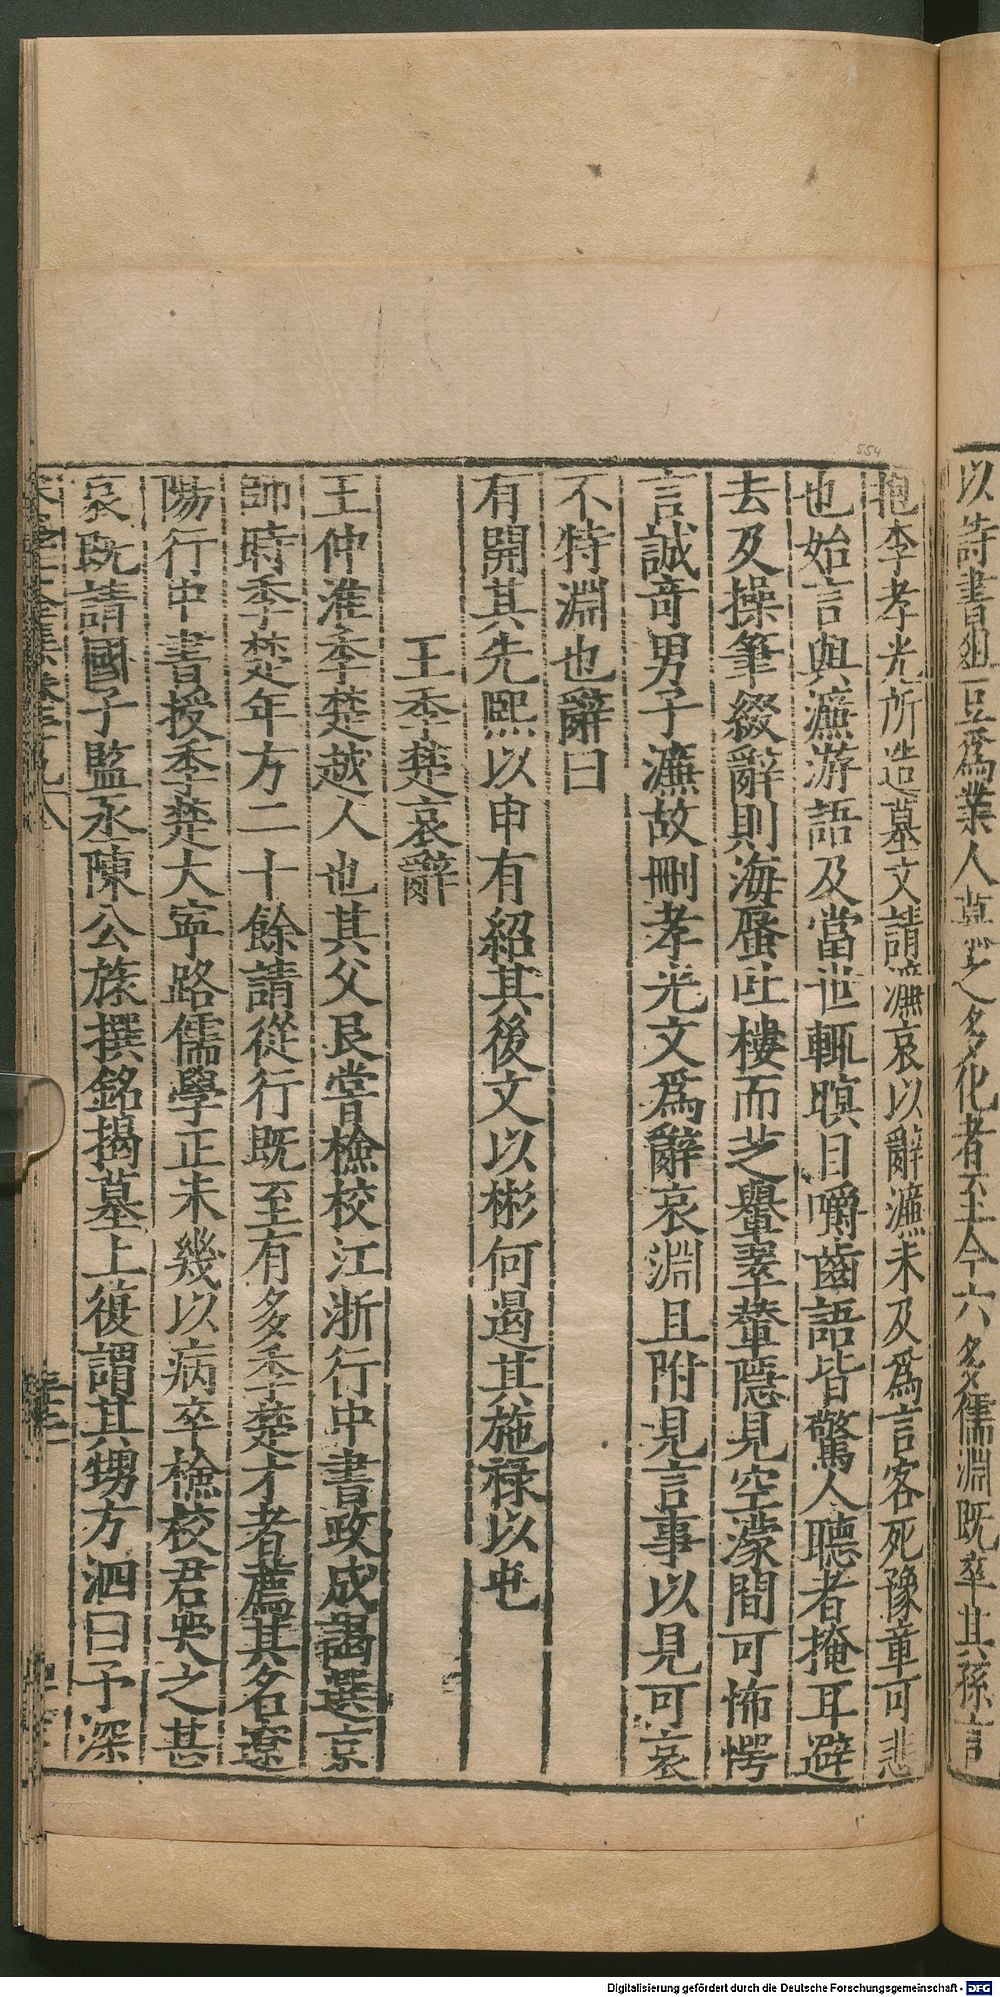 以詩書俎豆爲業人慕之多化者至今六多儒淵既卒其孫
抱李孝光所造墓文請濂哀以辭濂未及爲言客死豫章可悲
也始言與濂游語及當世輒瞋目嚼齒語皆驚人聽者掩耳避
去及操筆綴辭則海蜃吐樓而芝轝翠輦隱見空濛間可怖愕
言誠奇男子濂故刪孝光文爲辭哀淵且附見言事以見可哀
不特淵也辭曰
有開其先熙以申有紹其後文以彬何遏其施祿以屯
王季楚哀辭
王仲淮季楚越人也其父艮甞檢校江浙行中書政成謁選京
師時季楚年方二十餘請從行既至有多季楚才者薦其名遼
陽行中書授季楚大寧路儒學正未幾以病卒檢校君哭之甚
哀既請國子監丞陳公旅撰銘揭墓上復謂其甥方泗曰予深
554
Digitalisierung gefördert durch die Deutsche Forschungsgemeinschaft - DFG